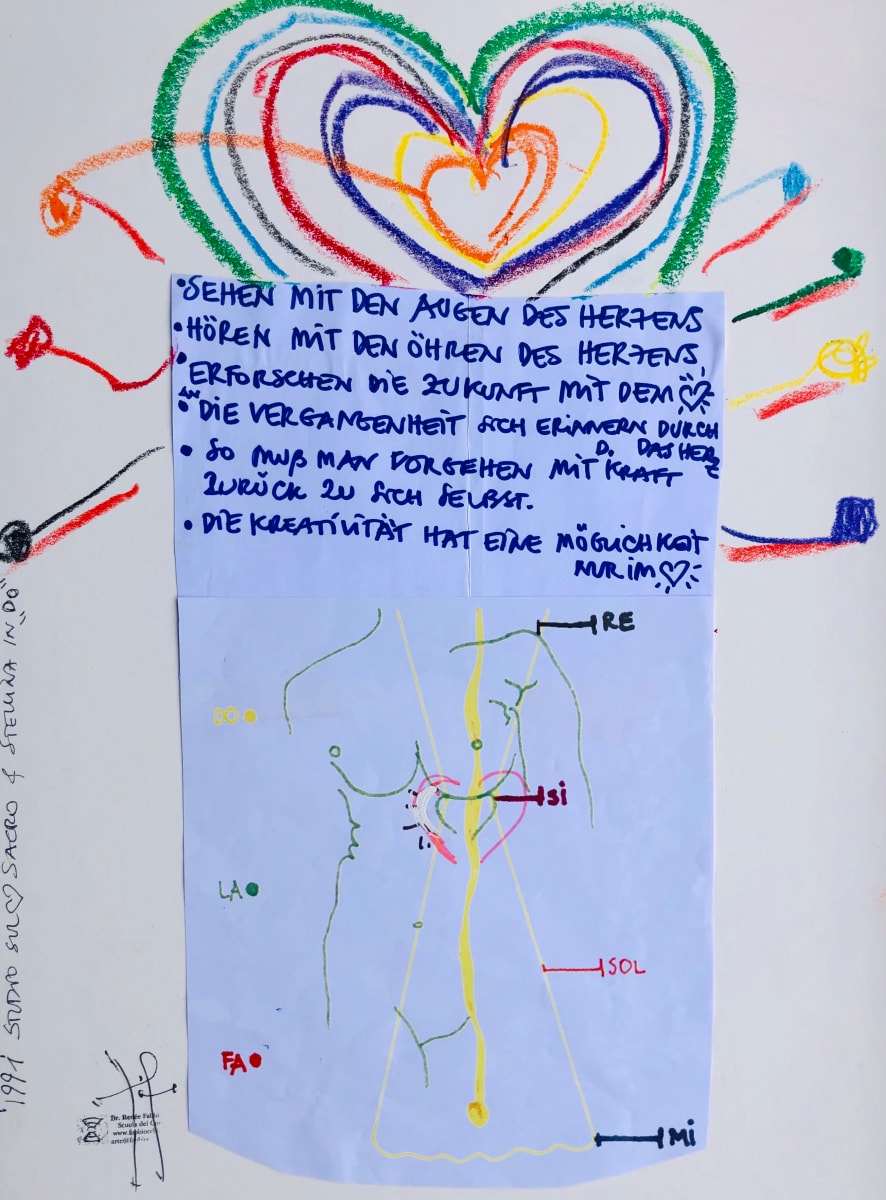 •SEHEN MIT DEN AUGEN DES HERZENS
•HÖREN MIT DEN ÖHREN DES HERZENS
•ERFORSCHEN DIE ZUKUNFT MIT DEM ♡
•AN DIE VERGANGENHEIT SICH ERINNERN DURCH
D. DAS HERZ
• SO MUß MAN VORGEHEN MIT KRAFT
ZURÜCK ZU SICH SELBST.
• DIE KREATIVITÄT HAT EINE MÖGLICHKEIT
NUR IM ♡
RE
DO
SI
LA
SOL
FA
MI
'1991 STUDIO SUL ♡ SACRO & STELLINA IN "DO"
Dr. Renée
Scuola del
www.